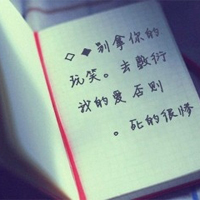 ◇◆别拿你的
玩笑。去敷衍
我的爱 否则
。死的很惨